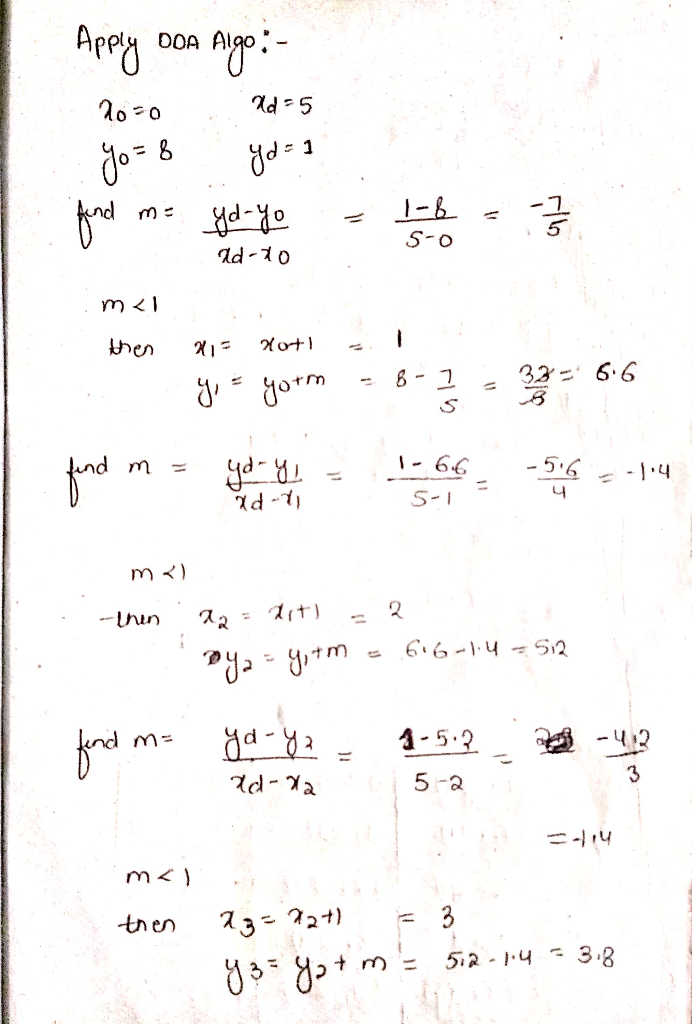 Apply DDA Algo:-
x0=0 xd=5
y0=8 yd=1
find m= yd-y0 / xd-x0 = 1-8 / 5-0 = -7/5
m<1
then x1= x0+1 = 1
y1= y0+m = 8-7/5 = 33 = 6.6
find m = yd-y1 / xd-x1 = 1-6.6 / 5-1 = -5.6/4 = -1.4
m<1
then x2= x1+1 = 2
y2= y1+m = 6.6-1.4=5.2
find m= yd-y2 / xd-x2 = 1-5.2 / 5-2 = -4.2/3
=-1.4
m<1
then x3=x2+1 = 3
y3= y2+m = 5.2-1.4 = 3.8